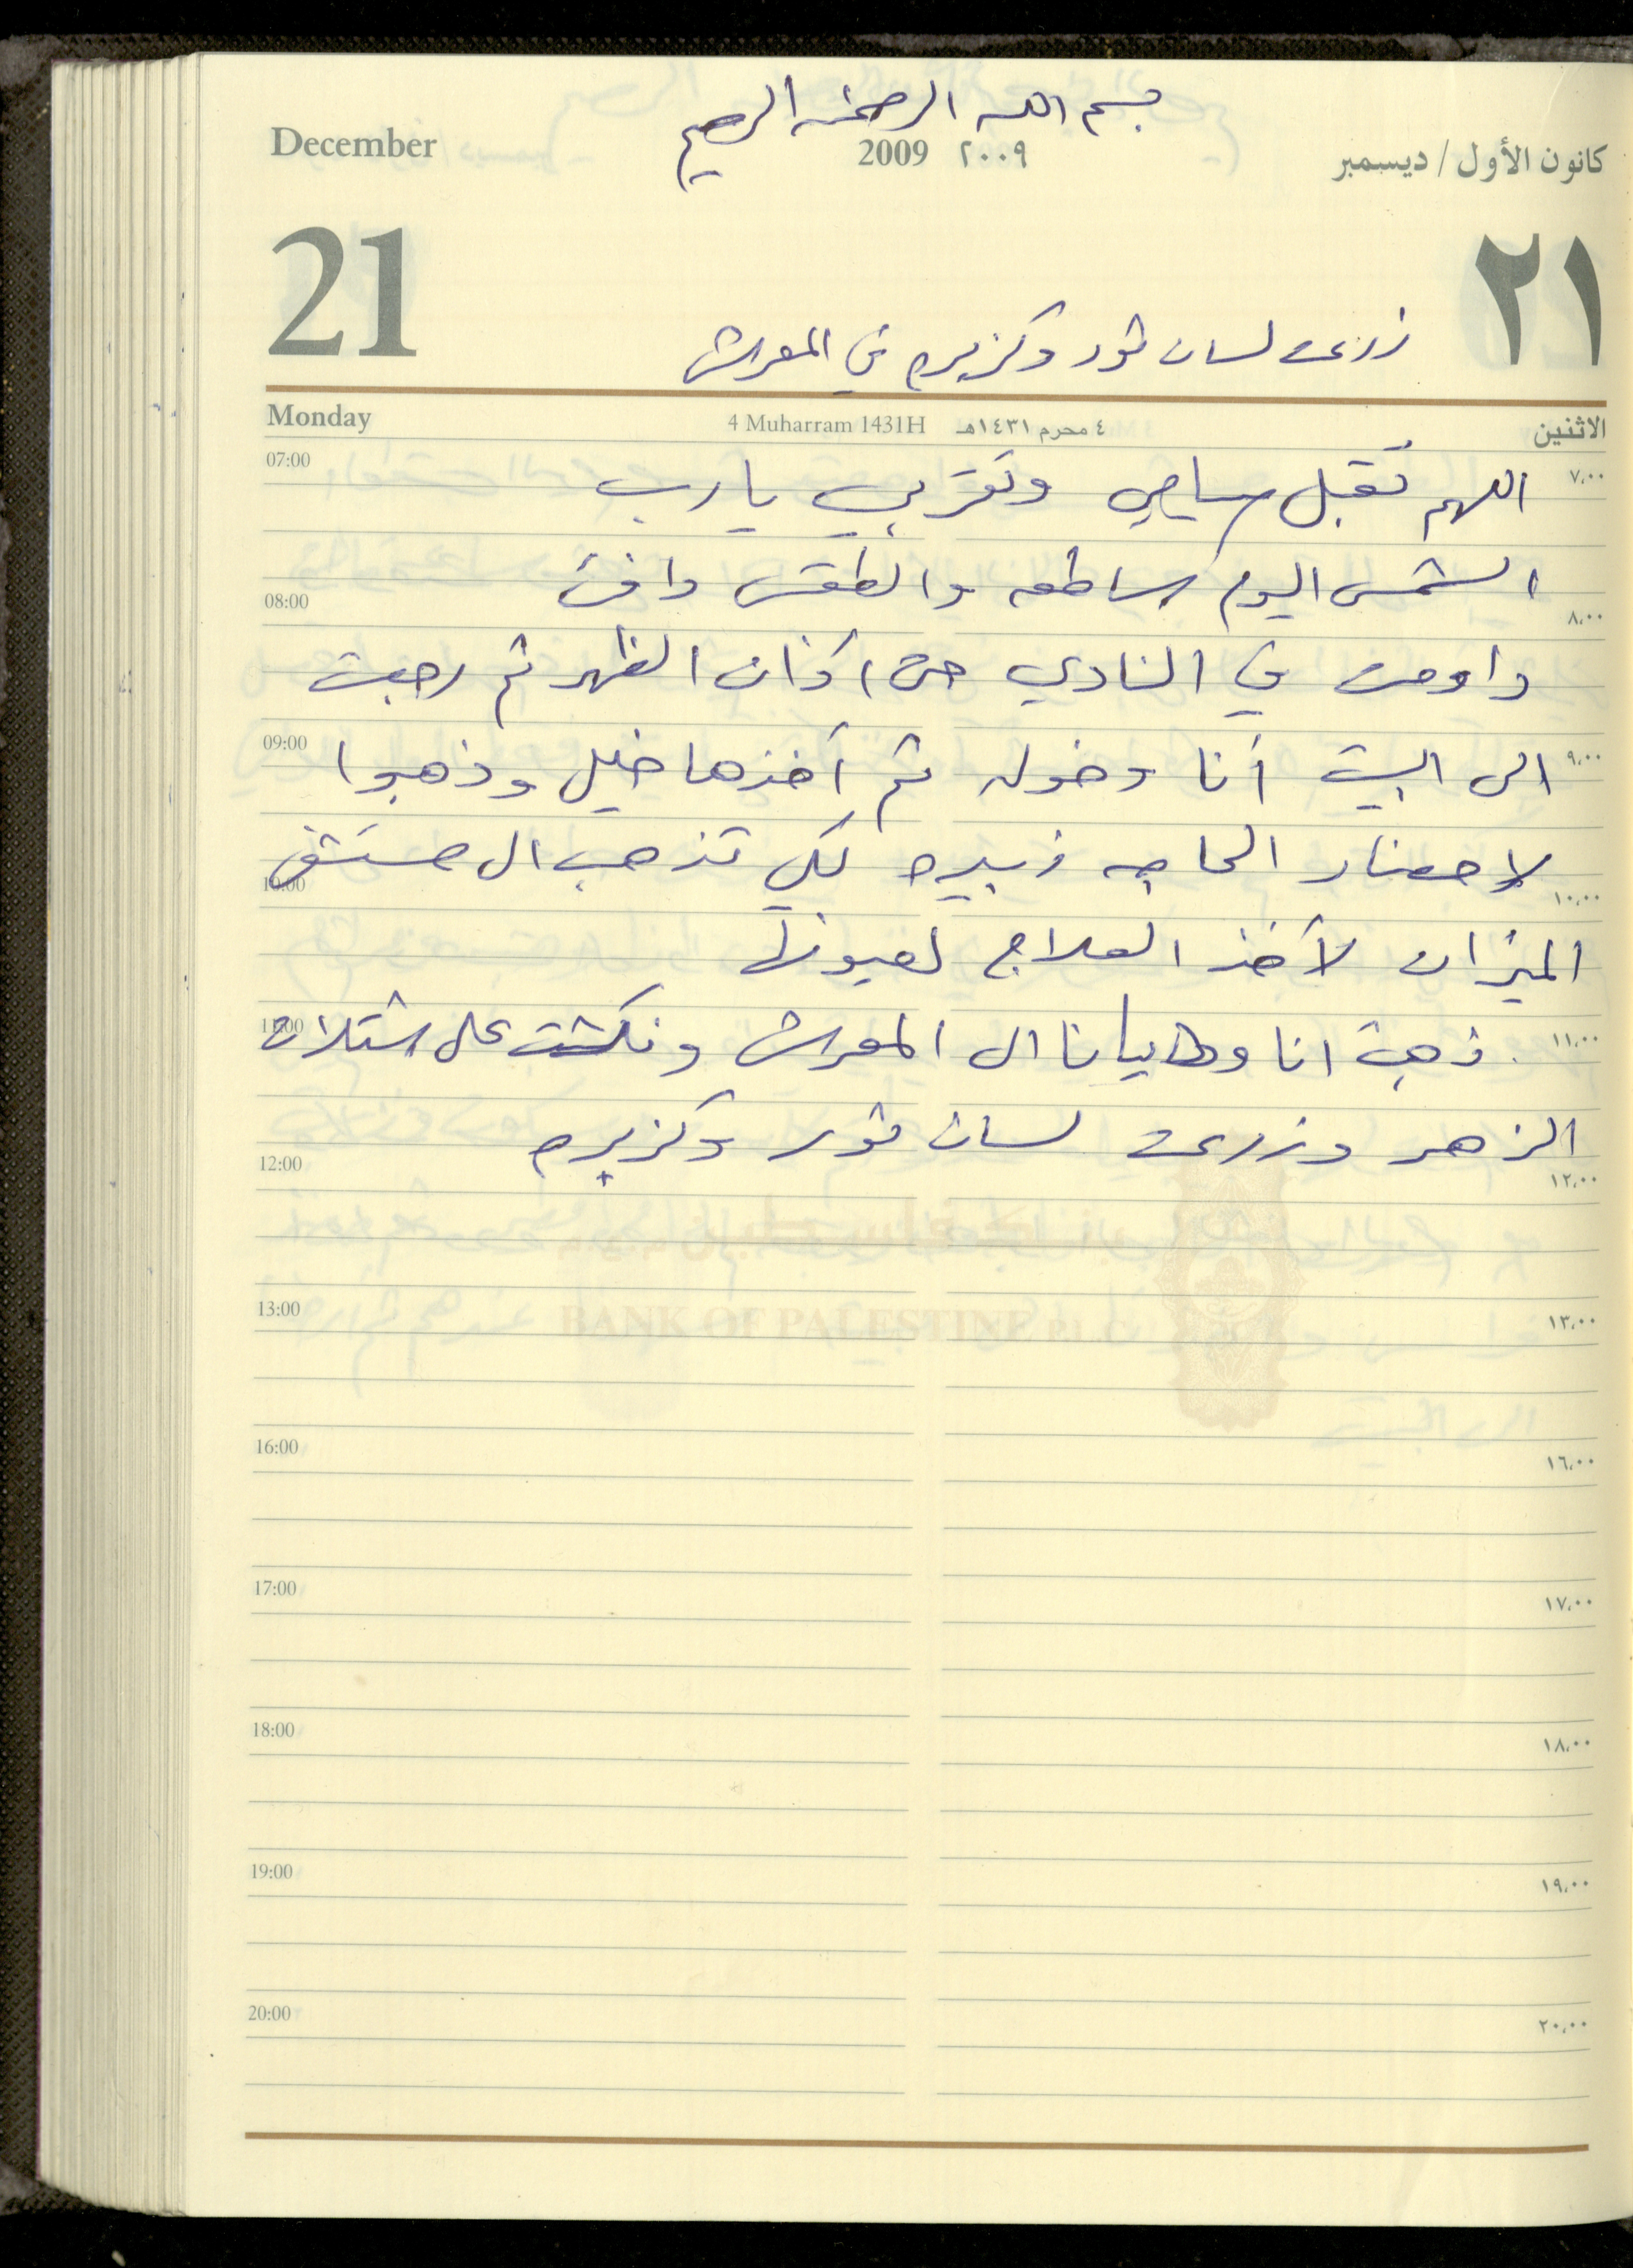 بسم الله الرحمن الرحيم
December 2009 ٢٠٠٩ كانون الأول / ديسمبر
21 ٢١
زرعت لسان ثور وكزبره في المعرش
Monday 4 Muharram 1431H ٤ محرم ١٤٣١هـ الاثنين
07:00 اللهم تقبل صيامي وتقربي يا رب ٧,٠٠
08:00 الشمس اليوم ساطعه والطقس دافئ ٨,٠٠
داومت في النادي حتى اذان الظهر ثم رجعت
09:00 الى البيت أنا وخوله ثم أخذها خليل وذهبوا ٩,٠٠
10:00 لاحضار الحاجه زبيده لكي تذهب الى مستشفى ١٠,٠٠
الميزان لأخذ العلاج لعيونها
11:00 ذهبت انا وطايانا الى المعرش ونكشت على شتلات ١١,٠٠
الزهر وزرعت لسان ثور وكزبره
12:00 ١٢,٠٠
بنك فلسطين
13:00 BANK OF PALESTINE PLC ١٣,٠٠
16:00 ١٦,٠٠
17:00 ١٧,٠٠
18:00 ١٨,٠٠
19:00 ١٩,٠٠
20:00 ٢٠,٠٠